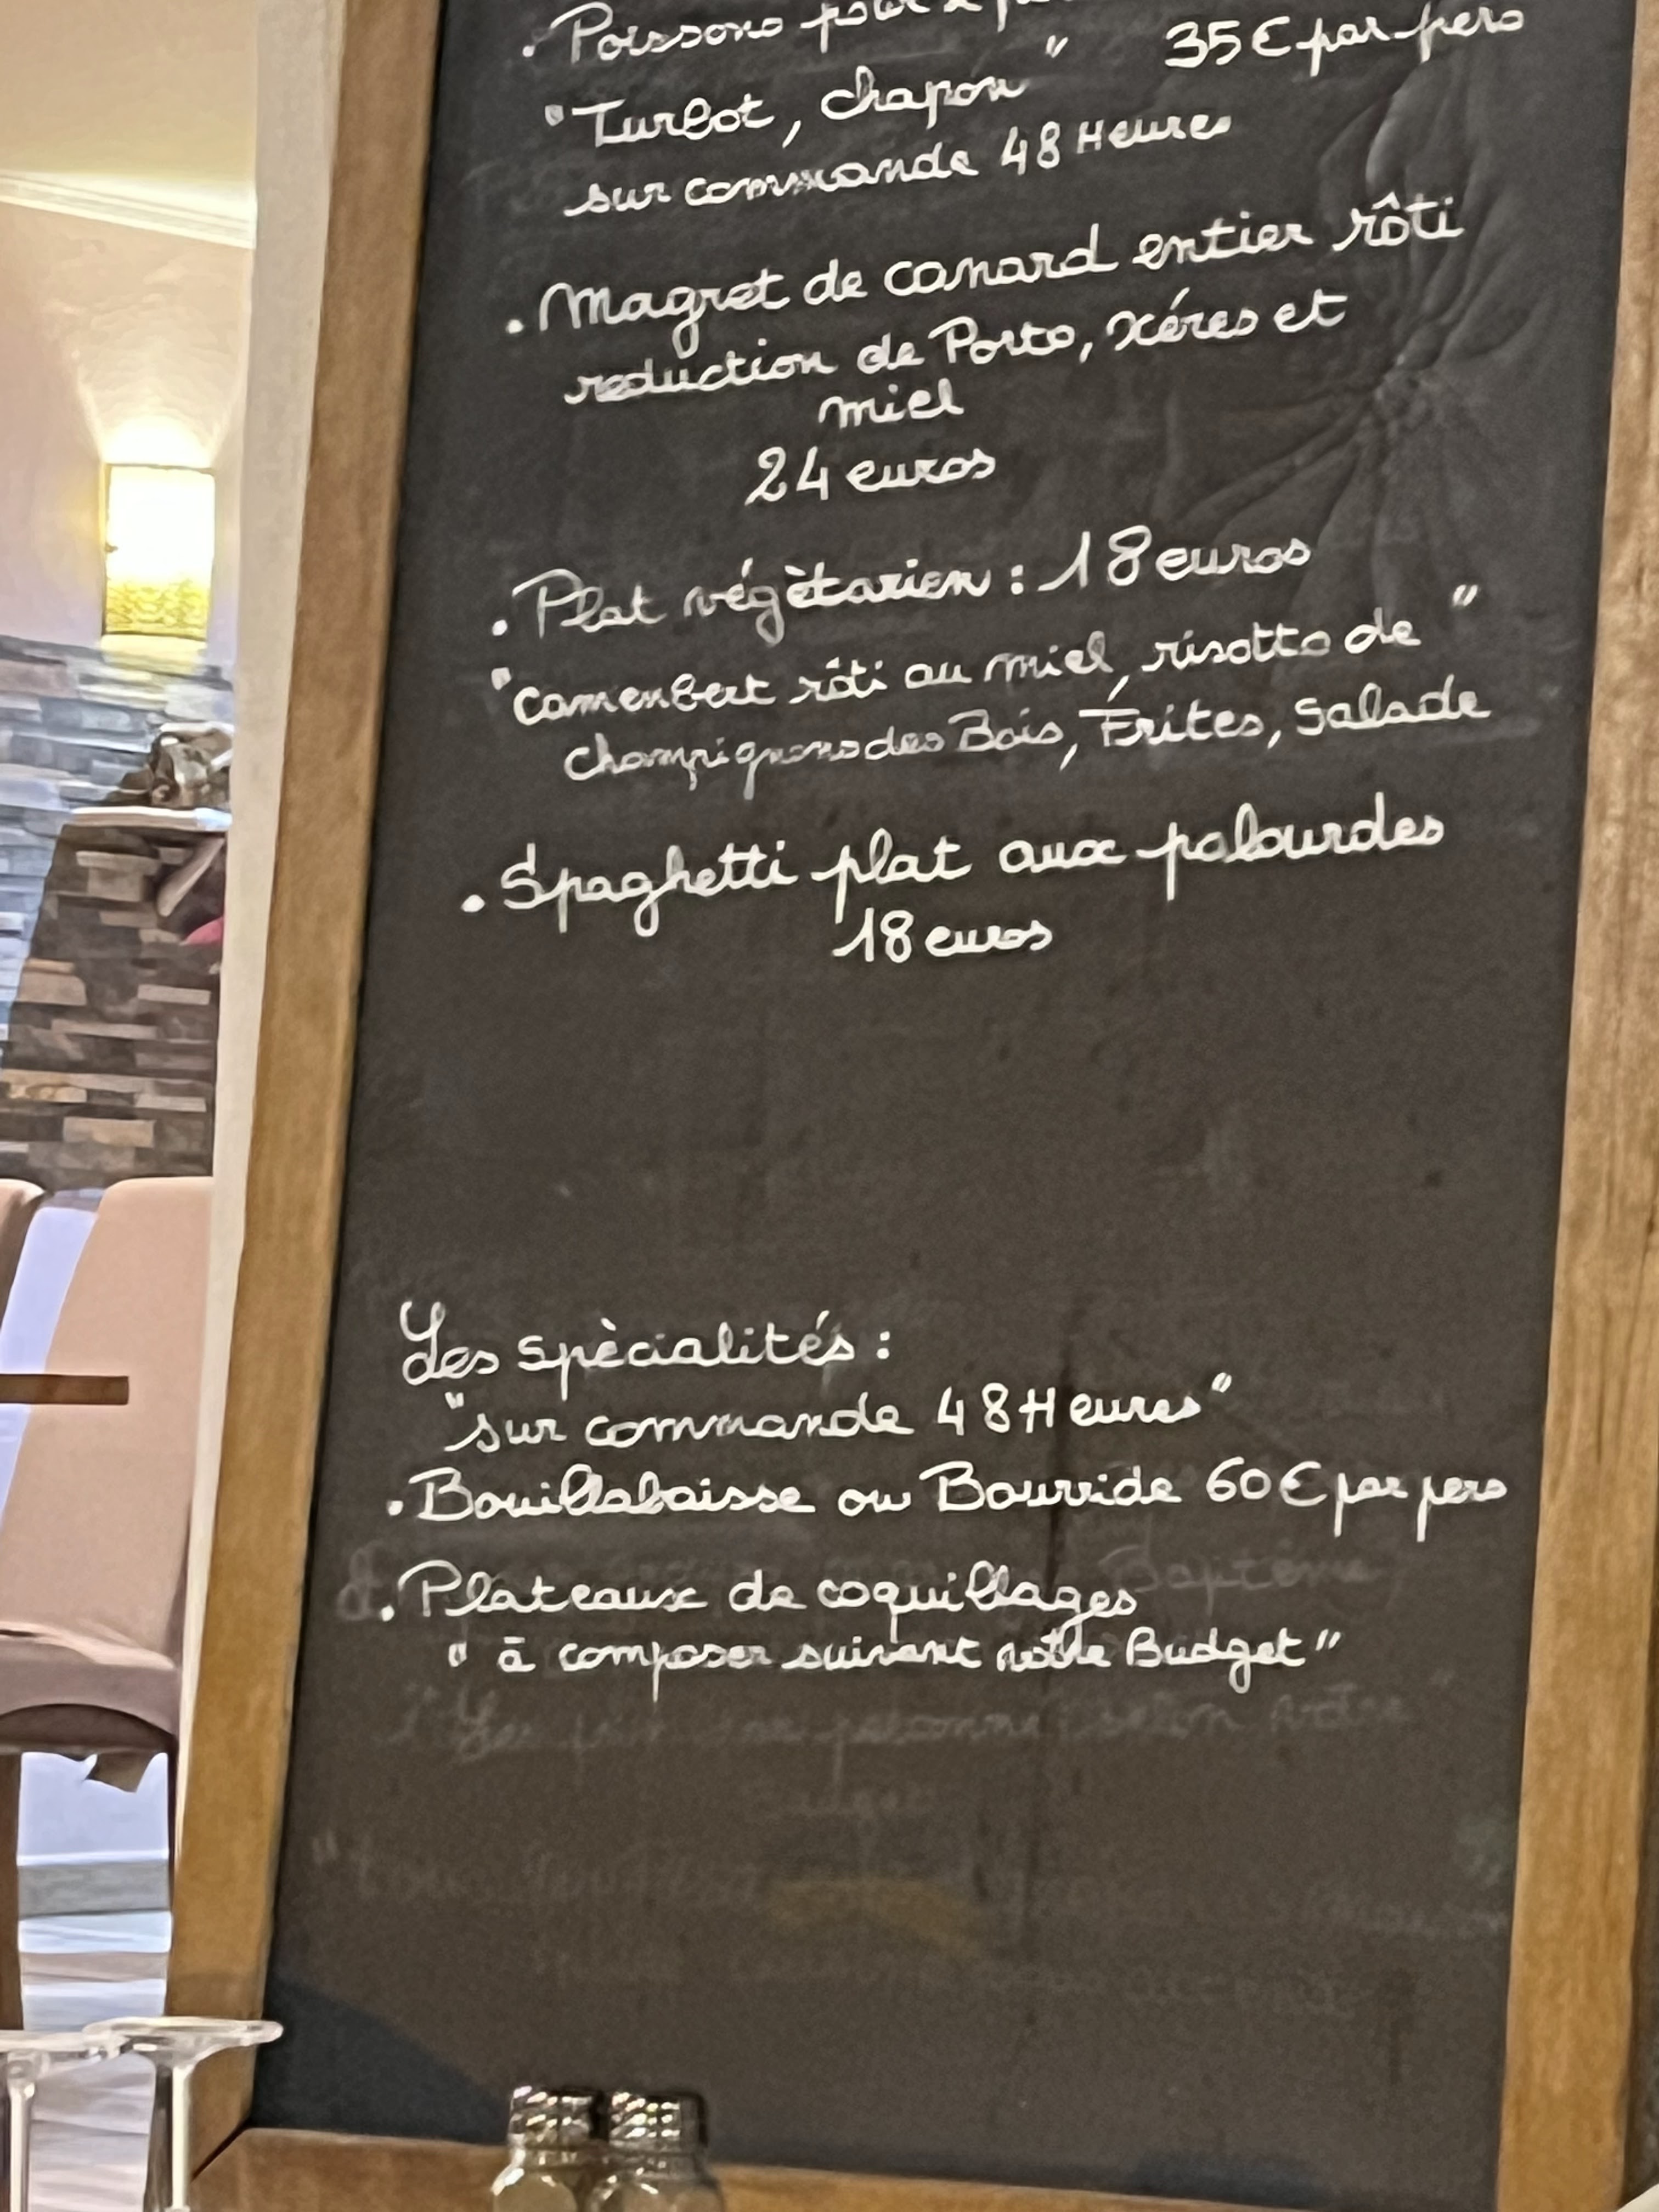 . Poissons pour 2
"Turbot, chapon" 35€ par pers
sur commande 48 Heures
. Magret de canard entier rôti
reduction de Porto, xéres et
miel
24 euros
. Plat végètarien : 18 euros
"camenbert rôti au miel, risotto de"
champignons des Bois, Frites, Salade
. Spaghetti plat aux palourdes
18 euros
Les spècialités :
"sur commande 48 Heures"
. Bouillabaisse ou Bourride 60€ par pers
. Plateaux de coquillages
"à composer suivant Budget"